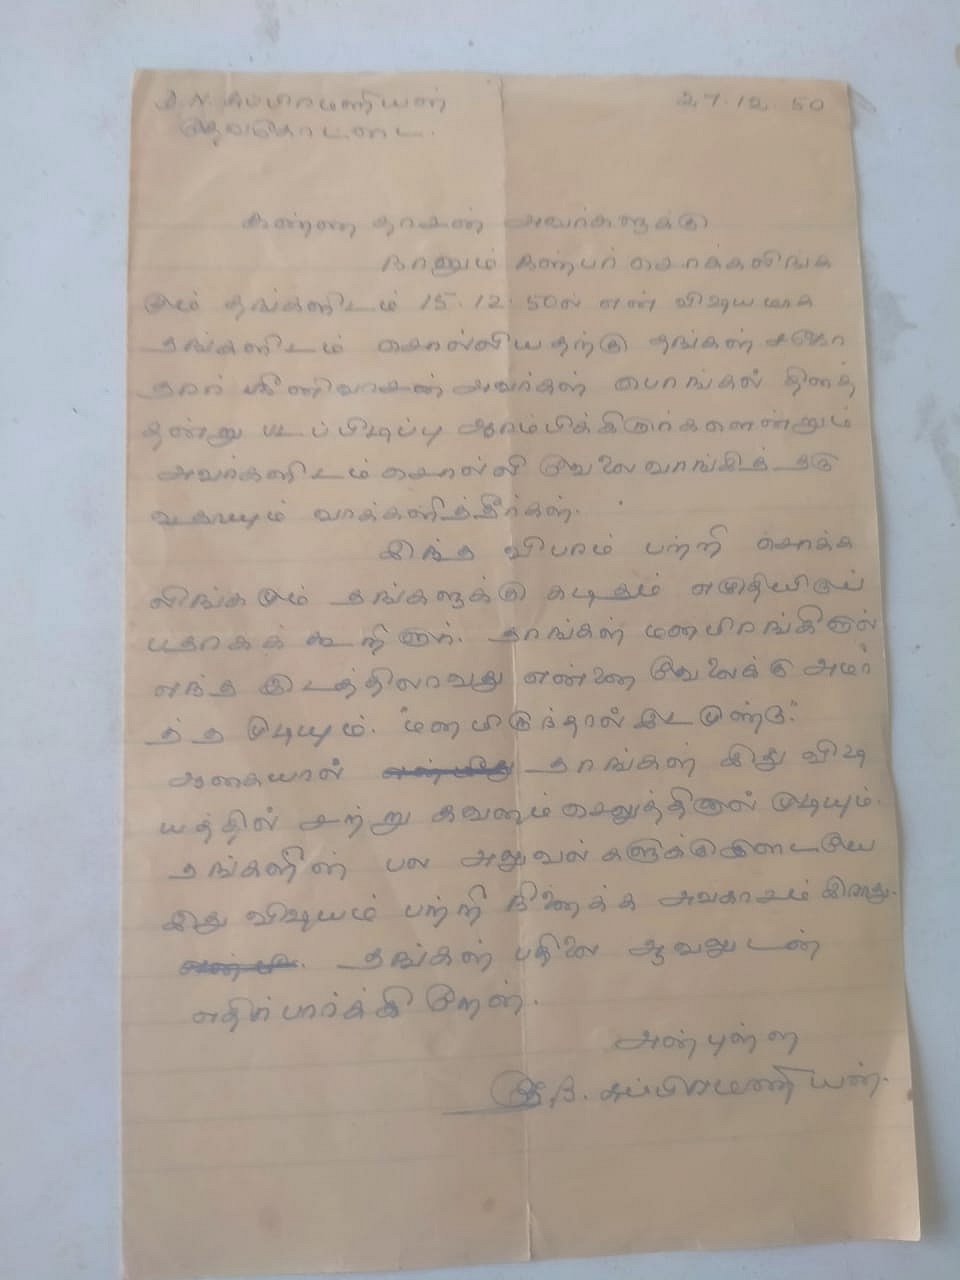 S. N. சுப்பிரமணியன் 27.12.50
தேவகோட்டை.
கண்ணதாசன் அவர்களுக்கு
நானும் நண்பர் சொக்கலிங்க
மும் தங்களிடம் 15.12.50ல் என் விஷயமாக
தங்களிடம் சொல்லியதற்கு தங்கள் சகோ
தரர் ஸ்ரீனிவாசன் அவர்கள் பொங்கல் தினத்
தன்று படப்பிடிப்பு ஆரம்பிக்கிறார்களென்றும்
அவர்களிடம் சொல்லி வேலை வாங்கித் தரு
வதாயும் வாக்களித்தீர்கள்.
இந்த விபரம் பற்றி சொக்க
லிங்கமும் தங்களுக்கு கடிதம் எழுதியிருப்
பதாகக் கூறினார். தாங்கள் மனமிரங்கினால்
எந்த இடத்திலாவது என்னை வேலைக்கு அமர்
த்த முடியும். "மனமிருந்தால் இடமுண்டு."
ஆகையால் தாங்கள் இது விஷ
யத்தில் சற்று கவனம் செலுத்தினால் முடியும்.
தங்களின் பல அலுவல்களுக்குகிடையே
இது விஷயம் பற்றி நினைக்க அவகாசம் இராது.
தங்கள் பதிலை ஆவலுடன்
எதிர்பார்க்கிறேன்.
அன்புள்ள
சுப்பிரமணியன்.